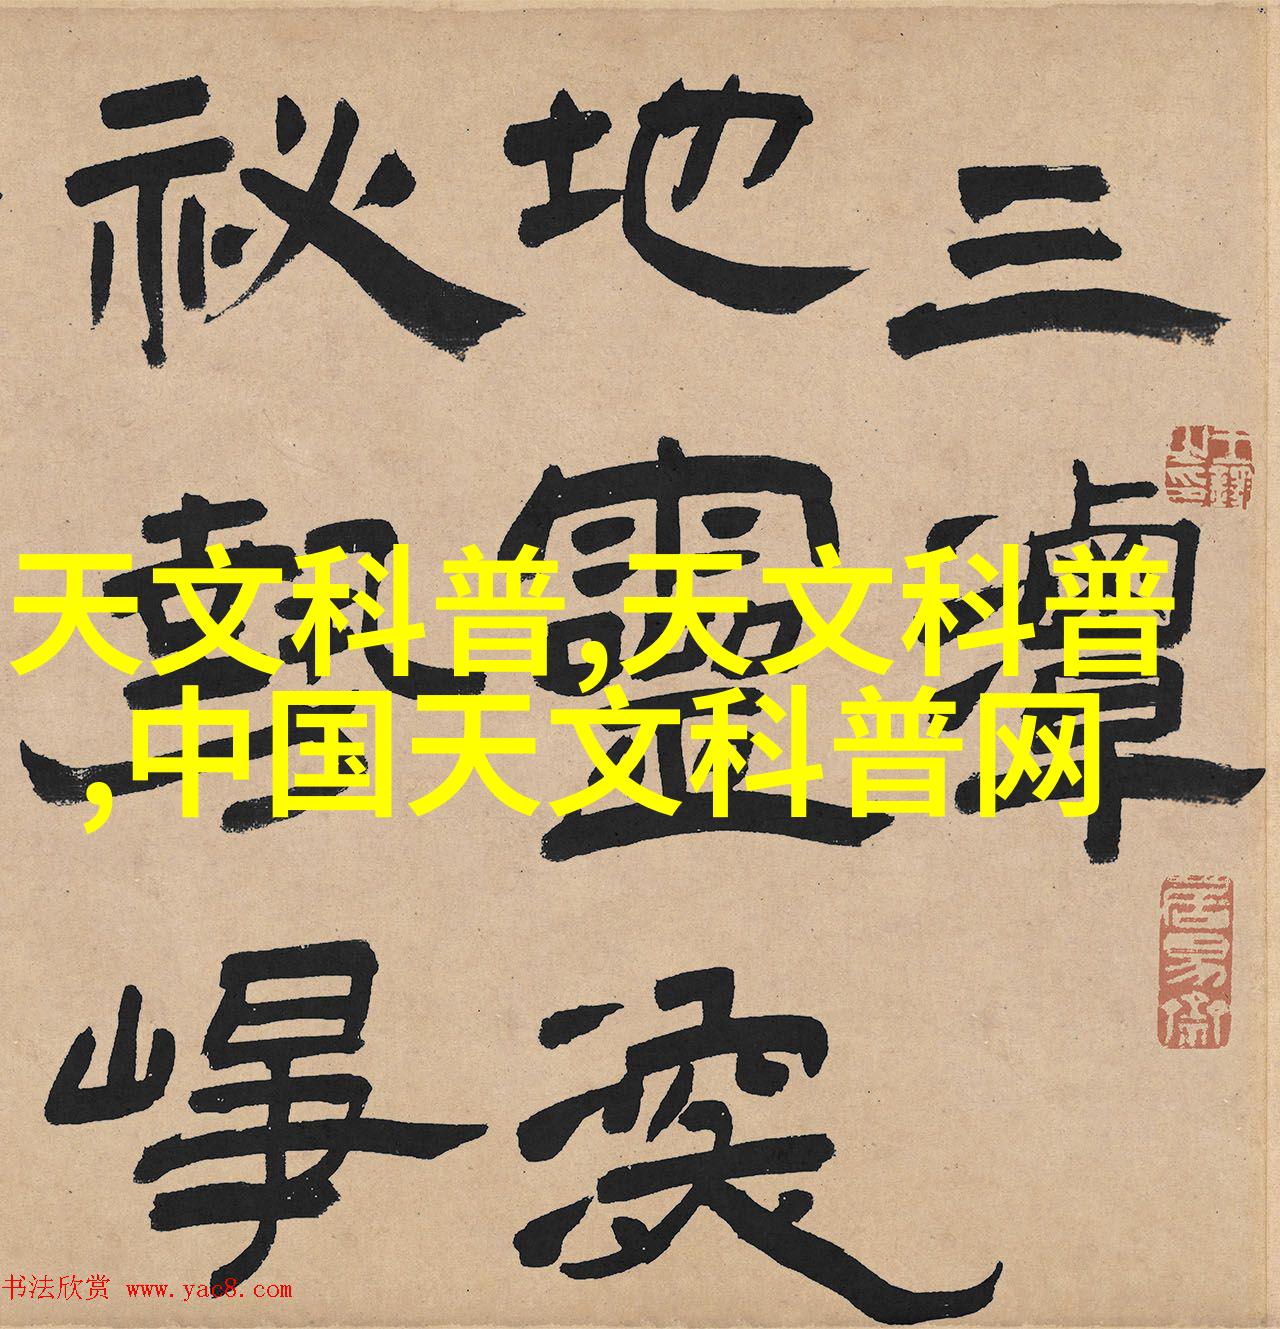 三潭
地靈
祕
天文科普,天文科普
,中国天文科普网
书法欣赏 www.yac8.com